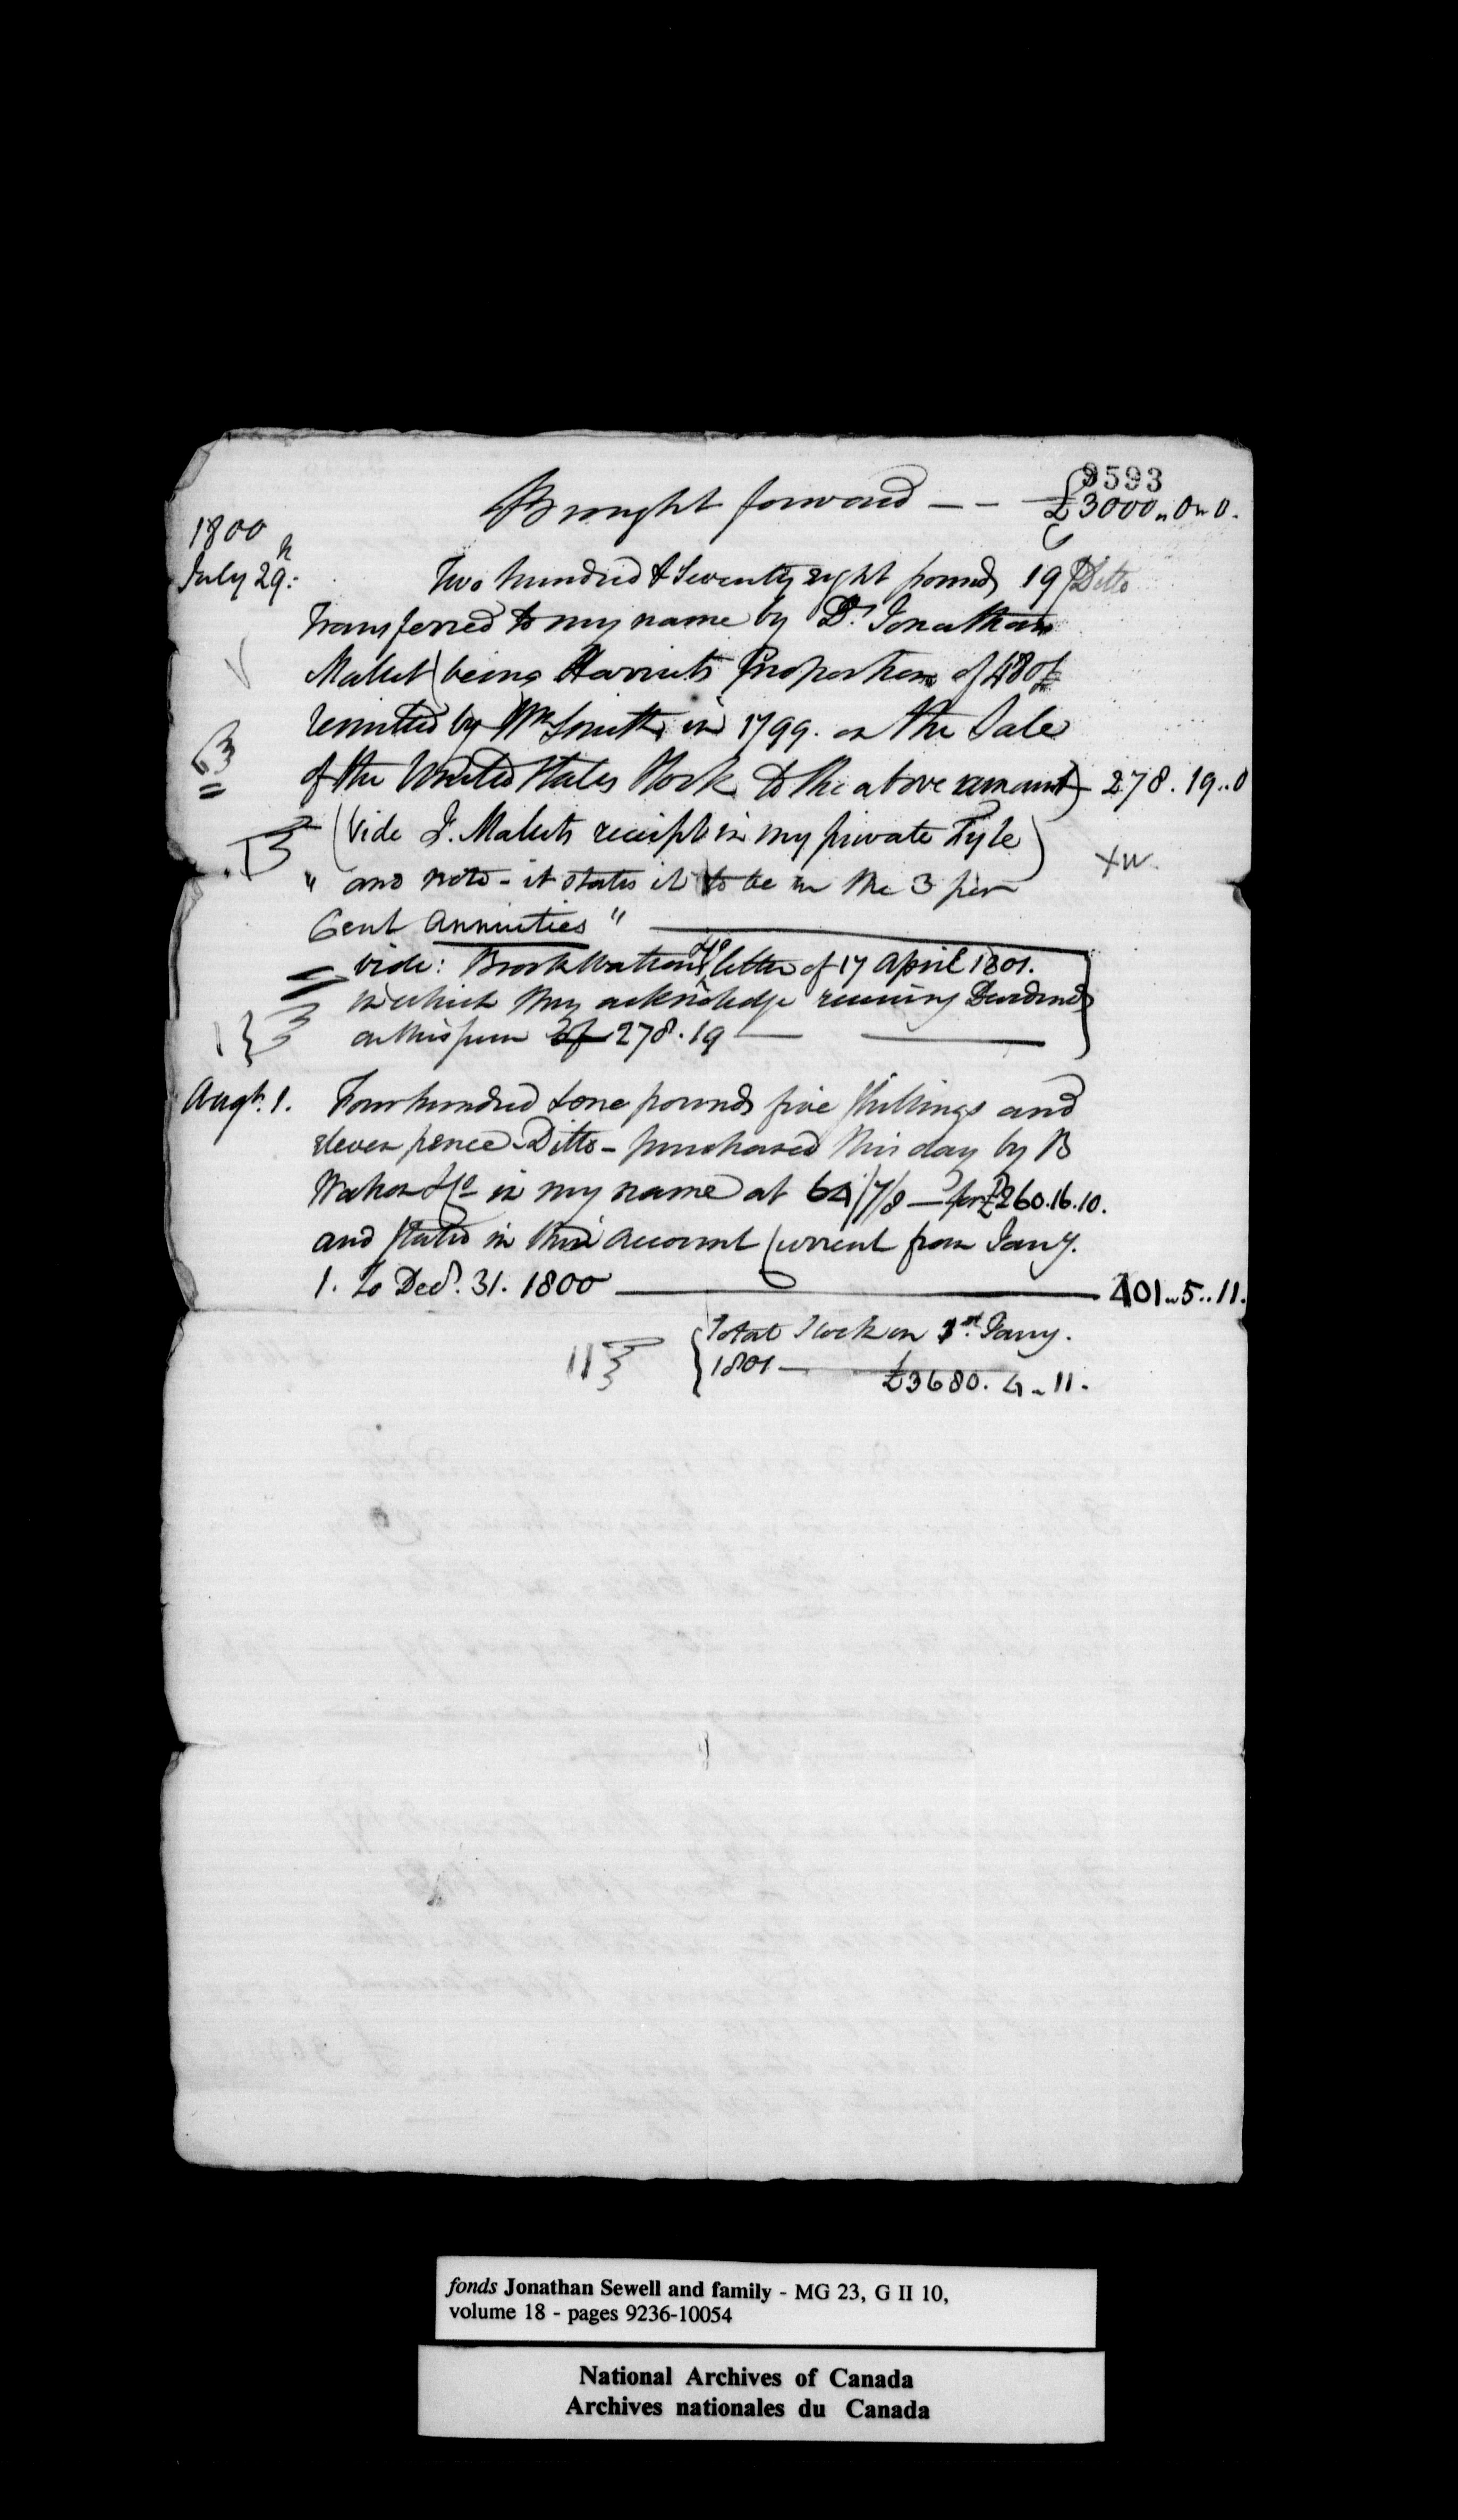 9593
Brought forward — — £3000 " 0 " 0.
1800
July 29: Two hundred & Seventy eight pounds 19/ Ditto
Transferred to my name by Dr. Jonathan
Mallet (being Harriets Proportion of 480£
remitted by Wm Smith in 1799. on the Sale
of the United States Stock to the above amount) 278. 19..0
(Vide J. Mallets receipt in my private Fyle)
" and note - it states it to be in the 3 per
Cent Annuities "
Vide: Brook Watson & Co letter of 17 April 1801.
in which they acknowledge receiving Dividends
on this sum of 278. 19
Augt. 1. Four hundred & one pounds five Shillings and
eleven pence Ditto - purchased this day by B
Watson & Co in my name at 64/7/8 — for £260.16.10.
and Stated in their Account Current from Jany.
1. to Decr. 31. 1800 — 401 " 5 .. 11.
Total Stock on 1st. Jany.
1801 — £3680. 4 .. 11.
fonds Jonathan Sewell and family - MG 23, G II 10,
volume 18 - pages 9236-10054
National Archives of Canada
Archives nationales du Canada